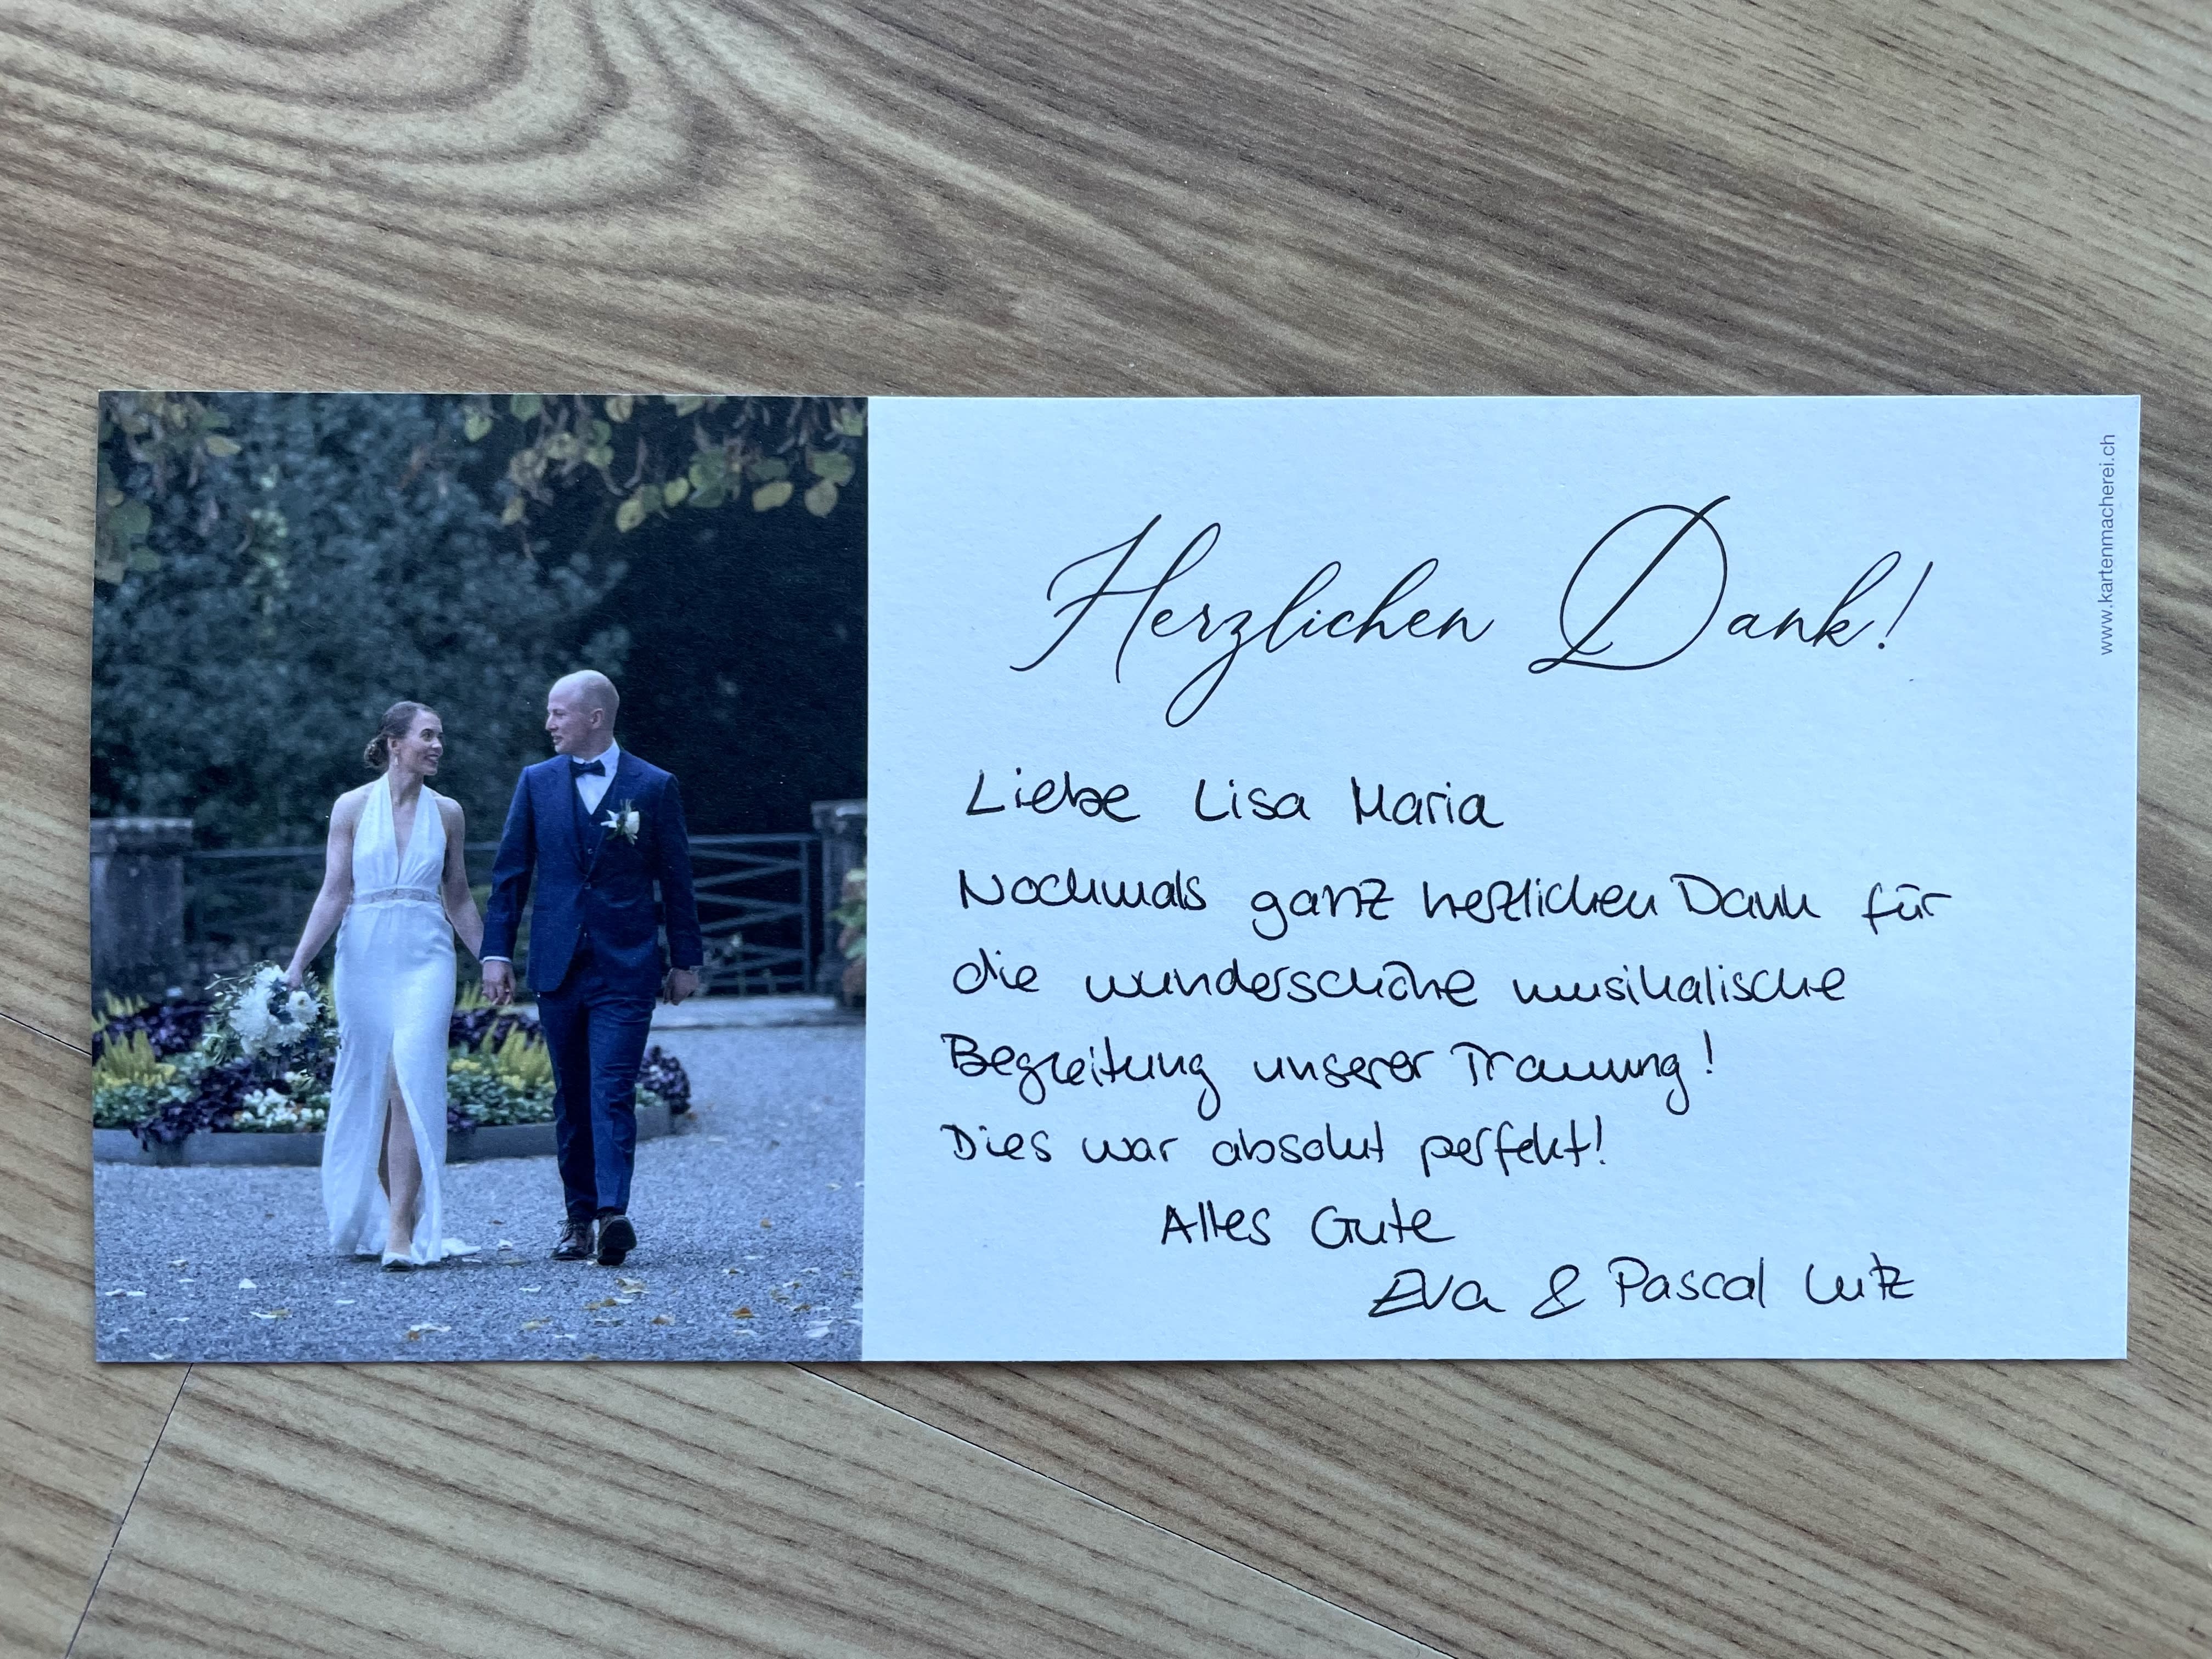 Herzlichen Dank!
www.kartenmacherei.ch
Liebe Lisa Maria
Nochmals ganz herzlichen Dank für
die wunderschöne musikalische
Begleitung unserer Trauung!
Dies war absolut perfekt!
Alles Gute
Eva & Pascal Lutz